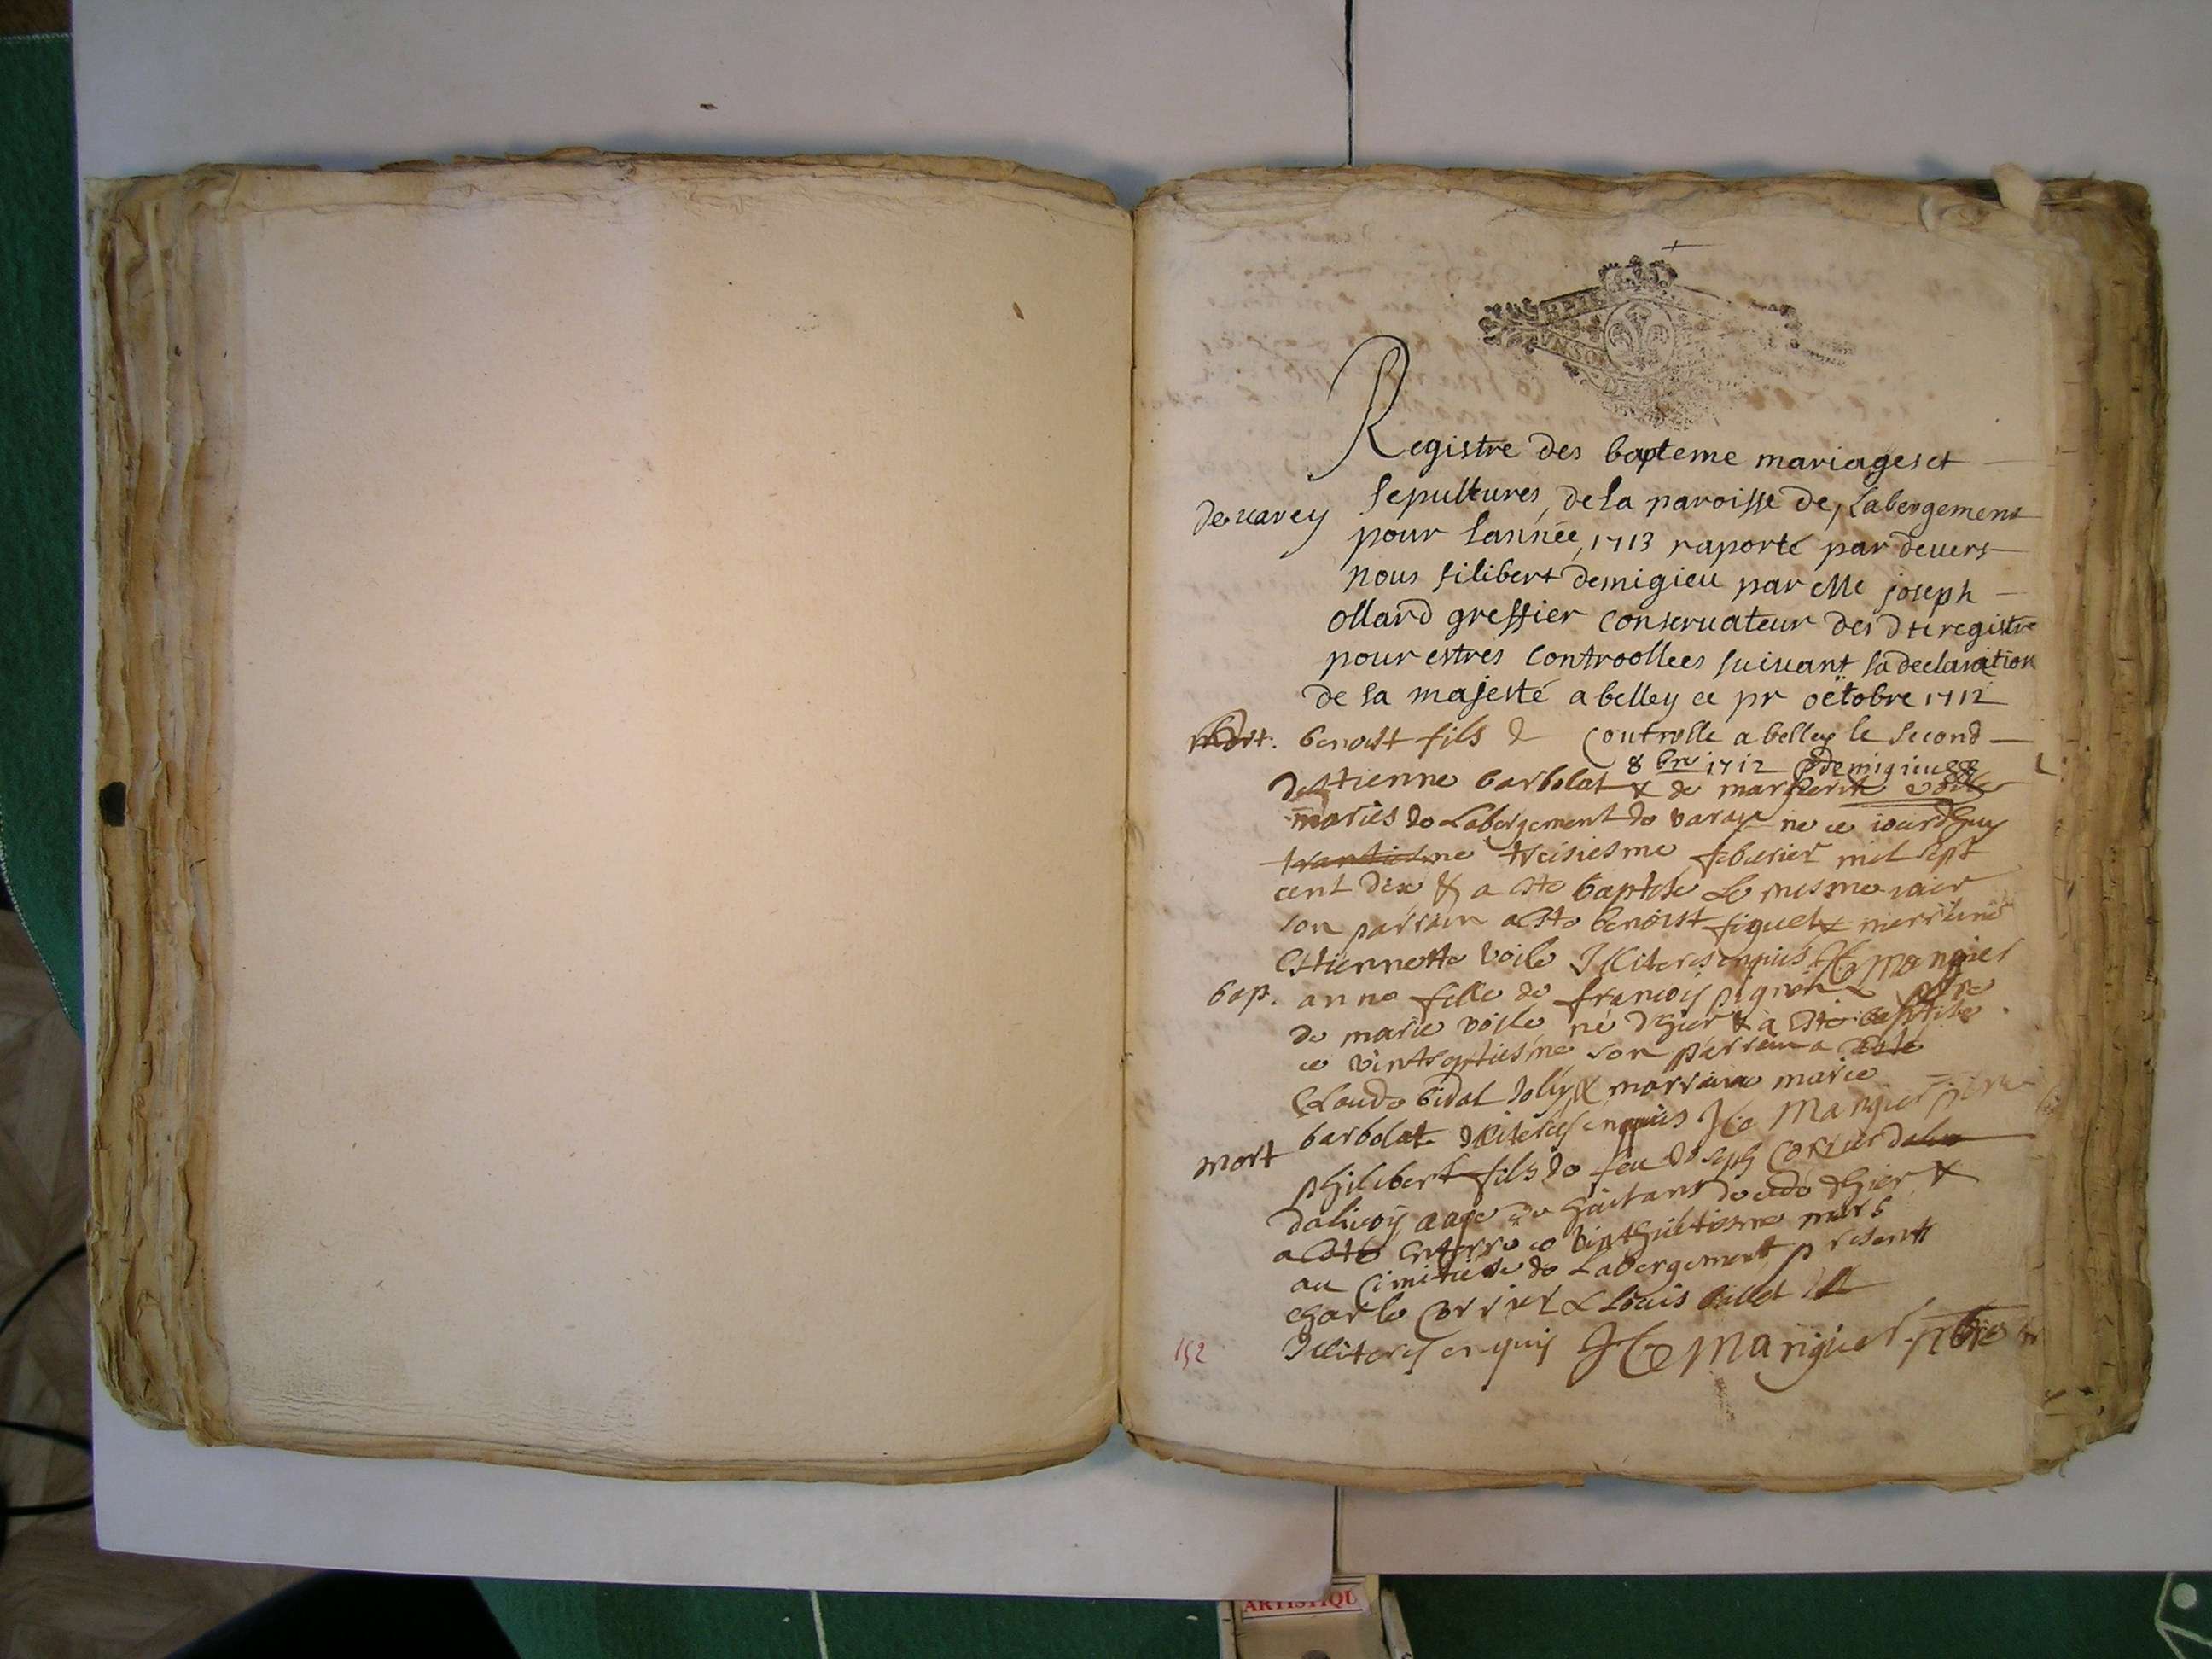 Registre des bapteme mariages et
de varey
sepultures, de la paroisse de, Labergement
pour lannée, 1713 raporté par devers
nous filibert demigieu par Me joseph
ollard greffier conservateur des dts registre
pour estres controollees suivant la declaration
de sa majesté a belley ce pr octobre 1712
Controlle a belley le second
8 bre 1712 demigieu
mort. benoist fils d
destienne barbolat & de margueritte
mariés de Labergement de varay ne ce iourdhuy
trantiesme treisiesme febvrier mil sept
cent & a este baptise le mesme iour
son parrain a este benoist figuet & marraine
Estiennette voile Illiteres enquis Mangier
bap. anne fille de françois pignon &
de marie voile né dhier & a este baptise
ce vintseptiesme son parrain a este
Claude bidal & marraine marie
barbolat Illiteres enquis Mangier
mort
philibert fils de feu Joseph Corrier
aage de huit ans decede dhier &
a esté enterre ce vinthuitiesme mars
au cimitiere de Labergement presents
charle Corrier & Louis
Illiteres enquis Mangier
152
ARTISTIQU